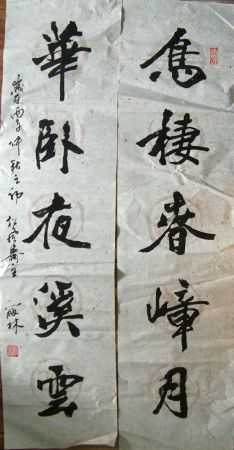 鳥棲春嶂月
華卧夜溪雲
歲在丙子仲秋之初